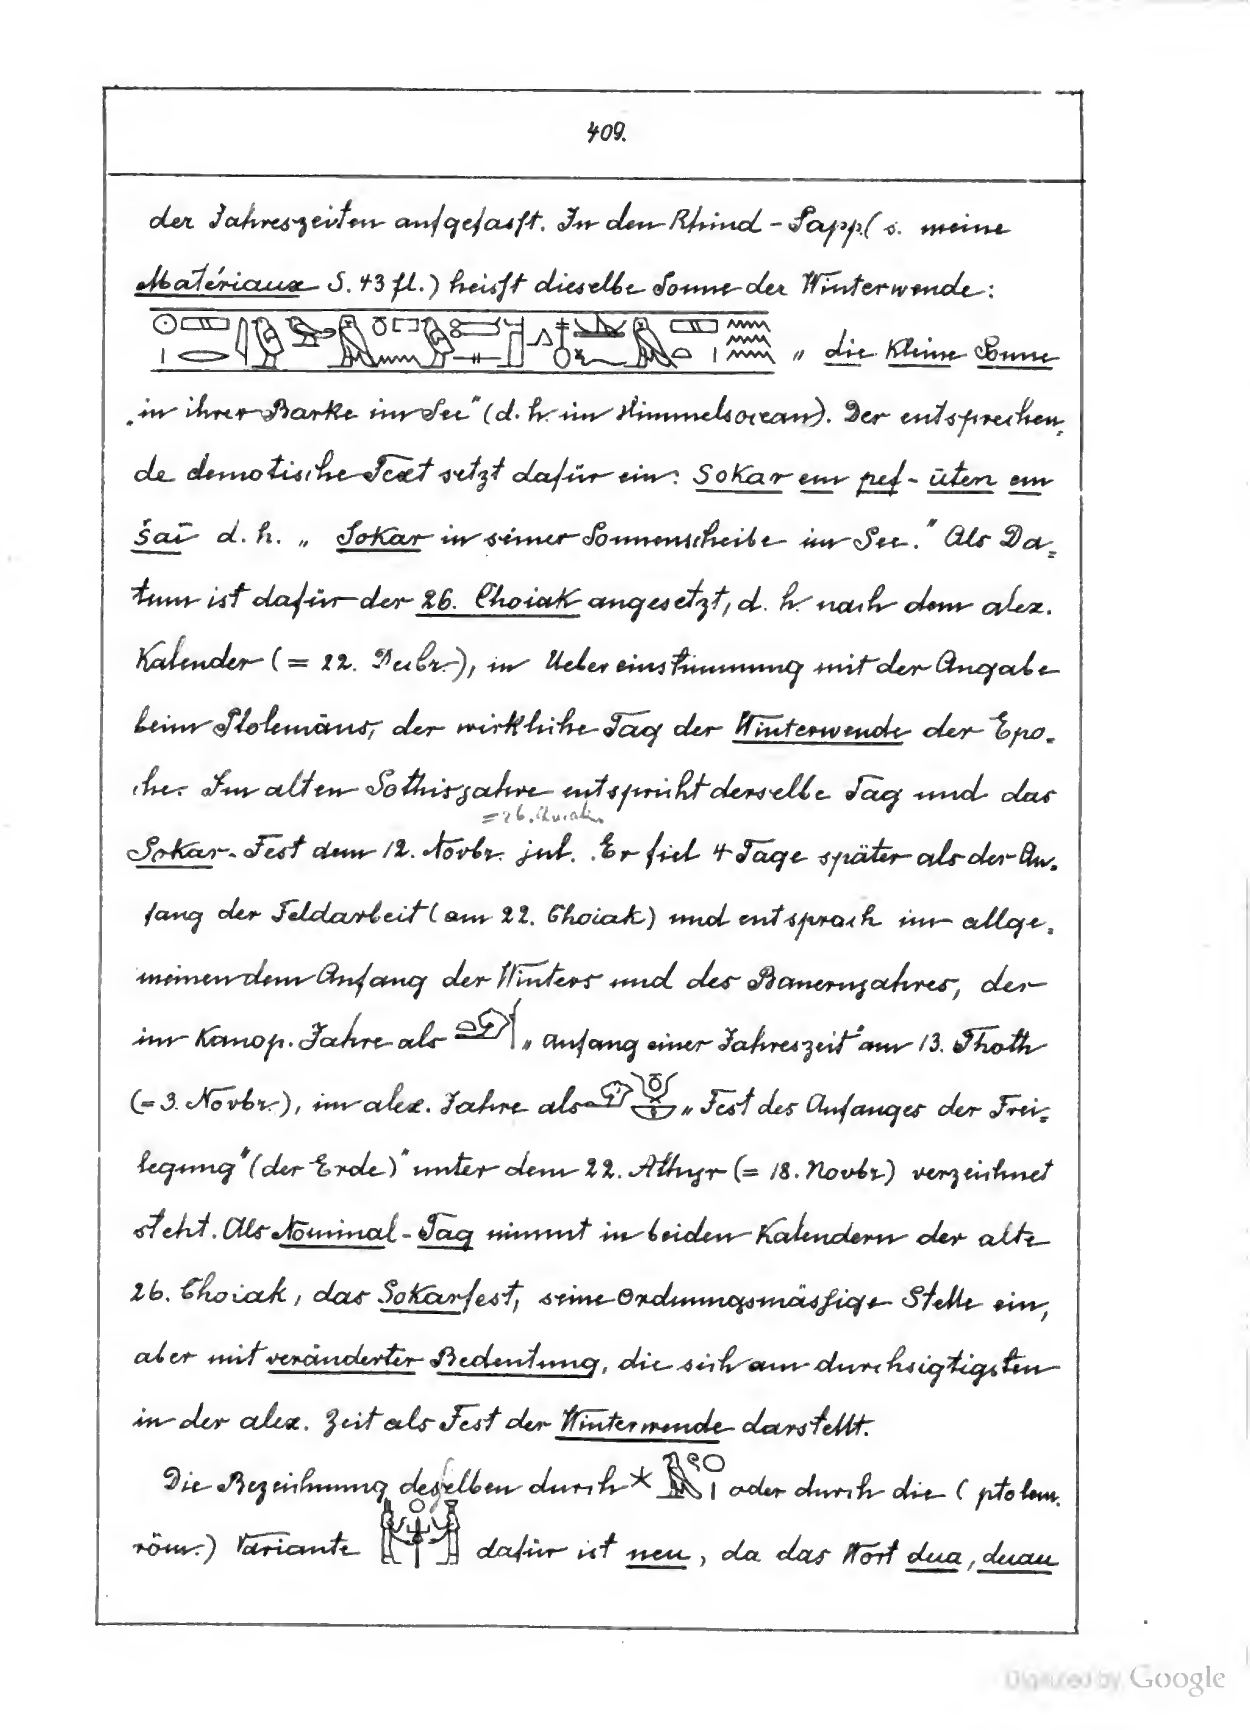 409.
der Jahreszeiten aufgefasst. In den Rhind-Papp. (s. meine
Matériaux S. 43 fl.) heisst dieselbe Sonne der Winterwende:
„die kleine Sonne
in ihrer Barke im See" (d. h. im Himmelsocean). Der entsprechen-
de demotische Text setzt dafür ein: Sokar em pef-üten em
šai d. h. „Sokar in seiner Sonnenscheibe im See." Als Da-
tum ist dafür der 26. Choiak angesetzt, d. h. nach dem alex.
Kalender (= 22. Decbr.), in Uebereinstimmung mit der Angabe
beim Ptolemäus, der wirkliche Tag der Winterwende der Epo-
che. Im alten Sothisjahre entspricht derselbe Tag und das
= 26. Choiak
Sokar-Fest dem 12. Novbr. jul. Er fiel 4 Tage später als der An-
fang der Feldarbeit (am 22. Choiak) und entsprach im allge-
meinen dem Anfang der Winters und des Bauernjahres, der
im Kanop. Jahre als „Anfang einer Jahreszeit" am 13. Thoth
(= 3. Novbr.), im alex. Jahre als „Fest des Anfanges der Frei-
legung" (der Erde)" unter dem 22. Athyr (= 18. Novbr) verzeichnet
steht. Als Nominal-Tag nimmt in beiden Kalendern der alte
26. Choiak, das Sokarfest, seine ordnungsmässige Stelle ein,
aber mit veränderter Bedeutung, die sich am durchsigtigsten
in der alex. Zeit als Fest der Winterwende darstellt.
Die Bezeichnung desselben durch oder durch die (ptolem.
röm.) Variante dafür ist neu, da das Wort dua, duau
Digitized by Google